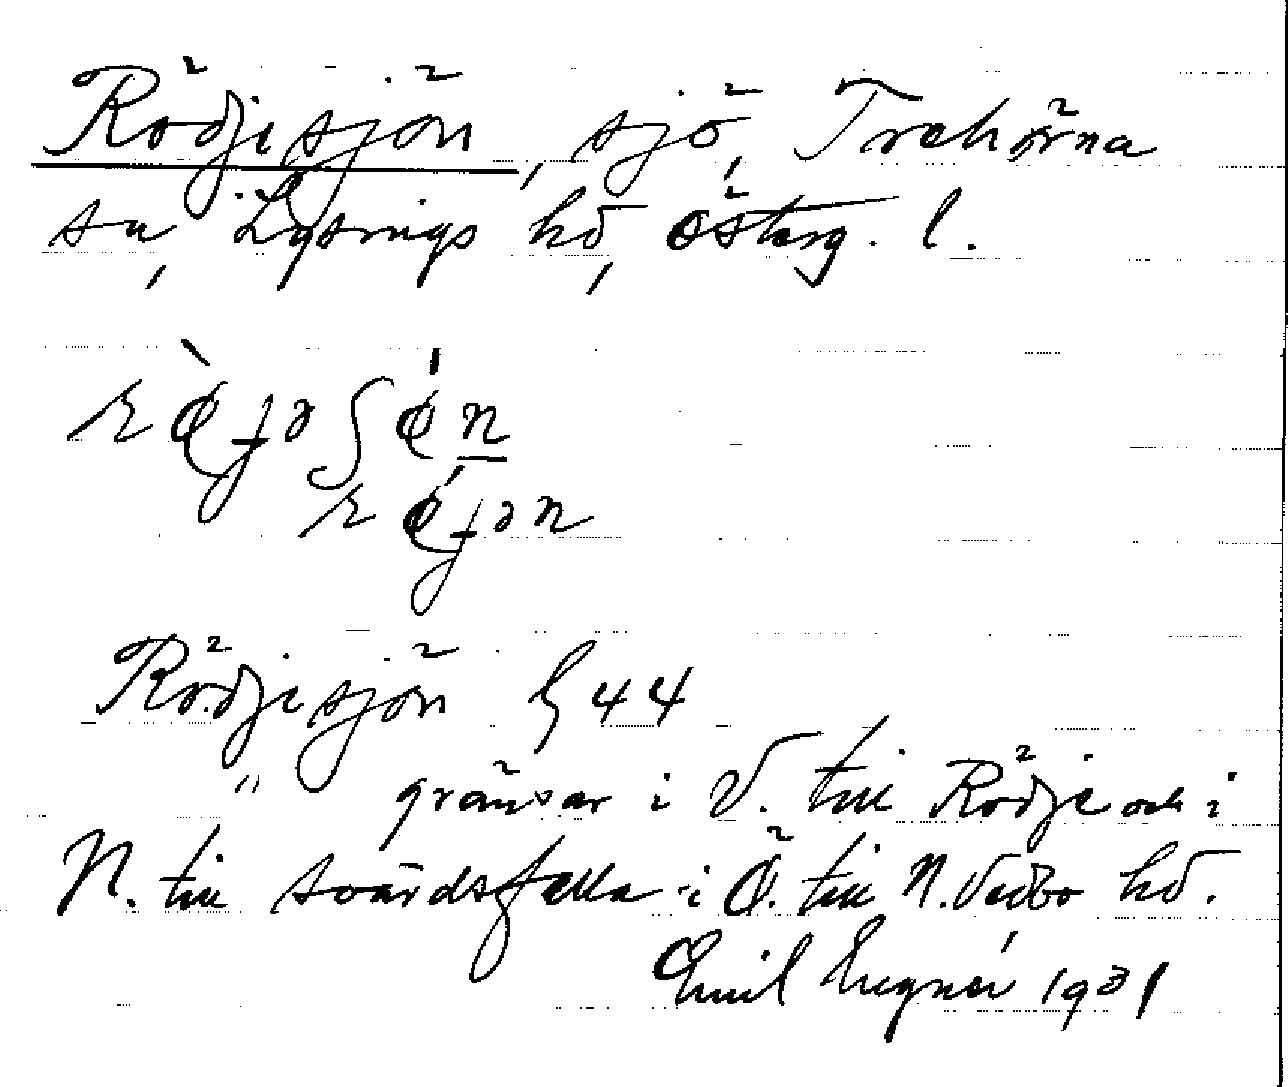 Rödjesjön, sjö, Trehörna
sn, Lysings hd, Österg. l.
Rödjesjön § 44
" gränsar i V. till Rödje och i
N. till Svärdsfälla i Ö. till N. Vedbo hd.
Emil 1931